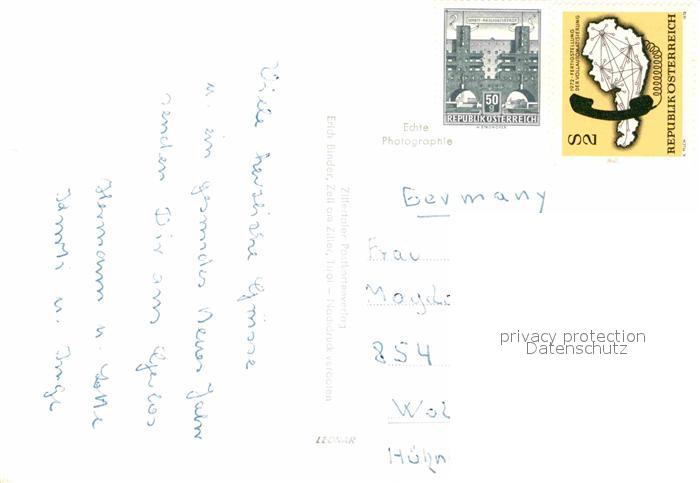 Viele herzliche Grüsse
u. ein gesundes Neues Jahr
senden Dir aus
Hermann u. Lotte
u.
Zillertaler Postkartenverlag
Erich Binder, Zell am Ziller, Tirol – Nachdruck verboten
Echte
Photographie
50
g
REPUBLIK ÖSTERREICH
1972 · FERTIGSTELLUNG
DER VOLLAUTOMATISIERUNG
S 2
REPUBLIK ÖSTERREICH
Germany
Frau
854
Hühn
LEONAR
privacy protection
Datenschutz